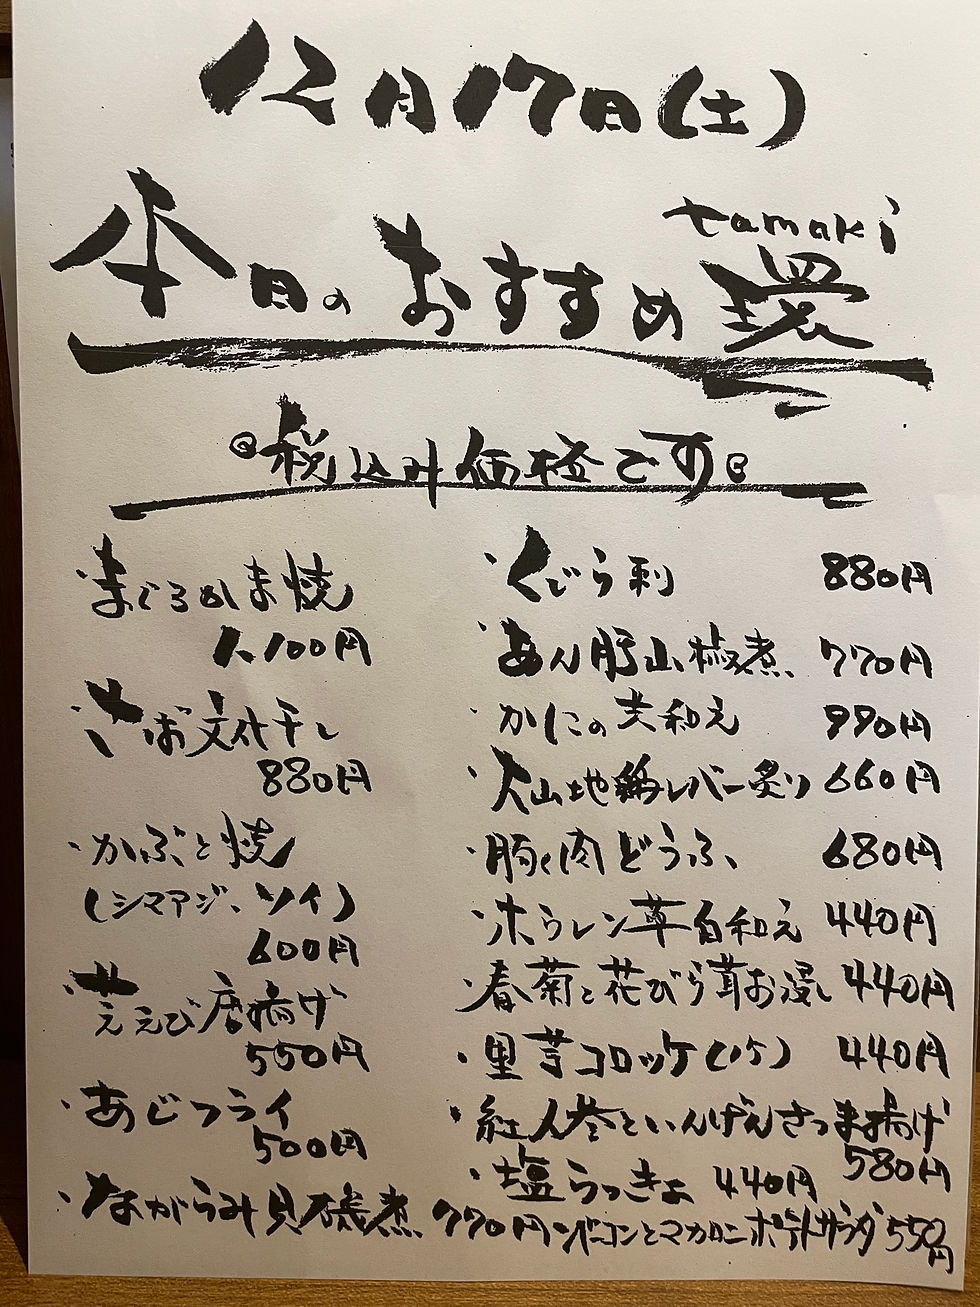 12月17日(土)
tamaki
本日のおすすめ 環
税込み価格です
・まぐろかま焼
1,100円
・さば文化干し
880円
・かぶと焼
(シマアジ、ソイ)
600円
・芝えび唐揚げ
550円
・あじフライ
500円
・ながらみ貝磯煮 770円
・くじら刺 880円
・あん肝山椒煮 770円
・かにの共和え 990円
・大山地鶏レバー炙り 660円
・豚肉どうふ 680円
・ホウレン草白和え 440円
・春菊と花びら茸お浸し 440円
・里芋コロッケ(1ケ) 440円
・紅人参といんげんさつま揚げ
580円
・塩らっきょ 440円
ベーコンとマカロニポテトサラダ 550円